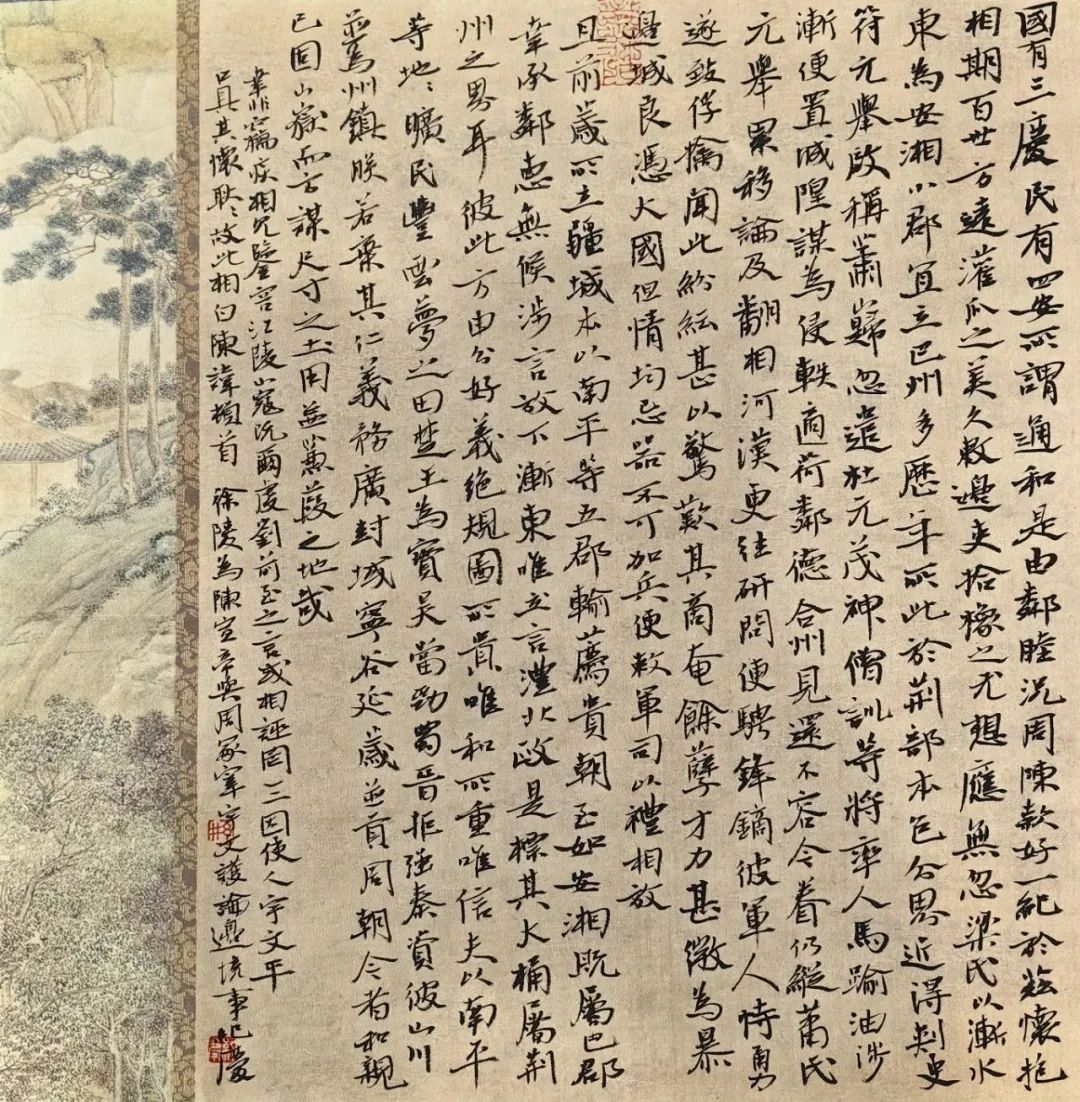 國有三慶民有四安所謂通和是由鄰睦況周陳款好一紀於茲懷抱
相期百世方遠灌瓜之美久敕邊吏拾橡之尤想應無忽梁氏以漸水
東為安湘小郡宜立巴州多歷年所此於荊部本包分界近得刺史
符元舉啟稱蕭巋忽遣杜元茂神僧訓等將率人馬踰油涉
漸便置城隍謀為侵軼適荷鄰德合州見還不容令眷仍縱蕭氏
元舉累移論及翻相河漢更往研問便騁鋒鏑彼軍人恃勇
遂致俘擒聞此紛紜甚以驚歎其商奄餘孽才力甚微為暴
邊城良憑大國但情均忌器不可加兵便敕軍司以禮相放
且前歲所立疆域本以南平等五郡輸薦貴朝至如安湘既屬巴郡
幸承鄰惠無候涉言故不漸東唯立言澧北政是標其大桶屬荊
州之界耳彼此方由公好義絕規圖所貴唯和所重唯信夫以南平
等地地曠民豐雲夢之田楚王為寶吳當勁蜀晉拒強秦資彼山川
並為州鎮朕若棄其仁義務廣封域寧谷延歲並肯周朝今者和親
已固山嶽而云謀尺寸之土用益蒹葭之地哉
相兄鑒容江陵小寇阮爾虔劉前至之言或相誣罔三囚使人宇文平
具其懷耿耿故此相白陳諱頓首 徐陵為陳宣帝與周冢宰宇文護論邊境事 紀慶